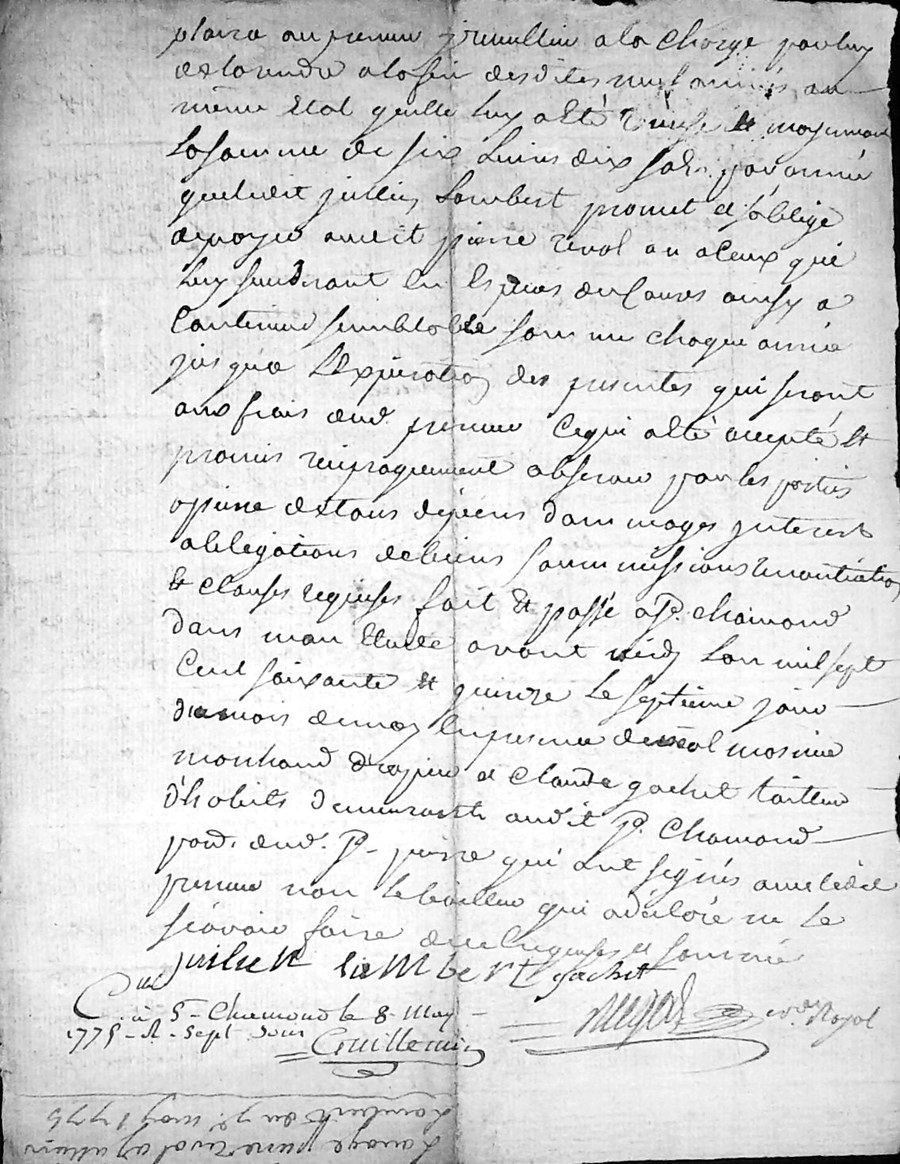 plaira au preneur y cueillir a la charge par luy
de la rendre a la fin desdites neuf années au
même Etat quelle luy a Eté remise Et moyennant
la somme de six livres dix sols par année
que ledit jullien Lambert promet et s'oblige
de payer audit pierre revol ou a ceux qui
luy succederont En Especes de cours ainsy a
Continuer semblable somme chaque année
jusqu'a L'Expiration des presentes qui seront
aux frais dud. preneur Ce qui a Eté accepté Et
promis reciproquement observer par les parties
a peine de tous depens dommages interests
obligations de biens soummissions renontiation
Et clauses requises fait Et passé a St. chamond
dans mon Etude avant midy L'an mil sept
Cent soixante Et quinze Le septieme jour
du mois de may En presence de
marchand drapier et Claude gachet tailleur
d'habits demeurants audit St. Chamond
par. dud. St. pierre qui ont signés avec ledit
preneur non le bailleur qui a declaré ne le
sçavoir faire de ce Enquis et sommé
jullien lambert gachet
Con.lé à St Chamond le 8 May
1775 R. Sept sous
Guillemin
no.re Royal
Lambert du 7e may 1775
Louage pierre revol a jullien